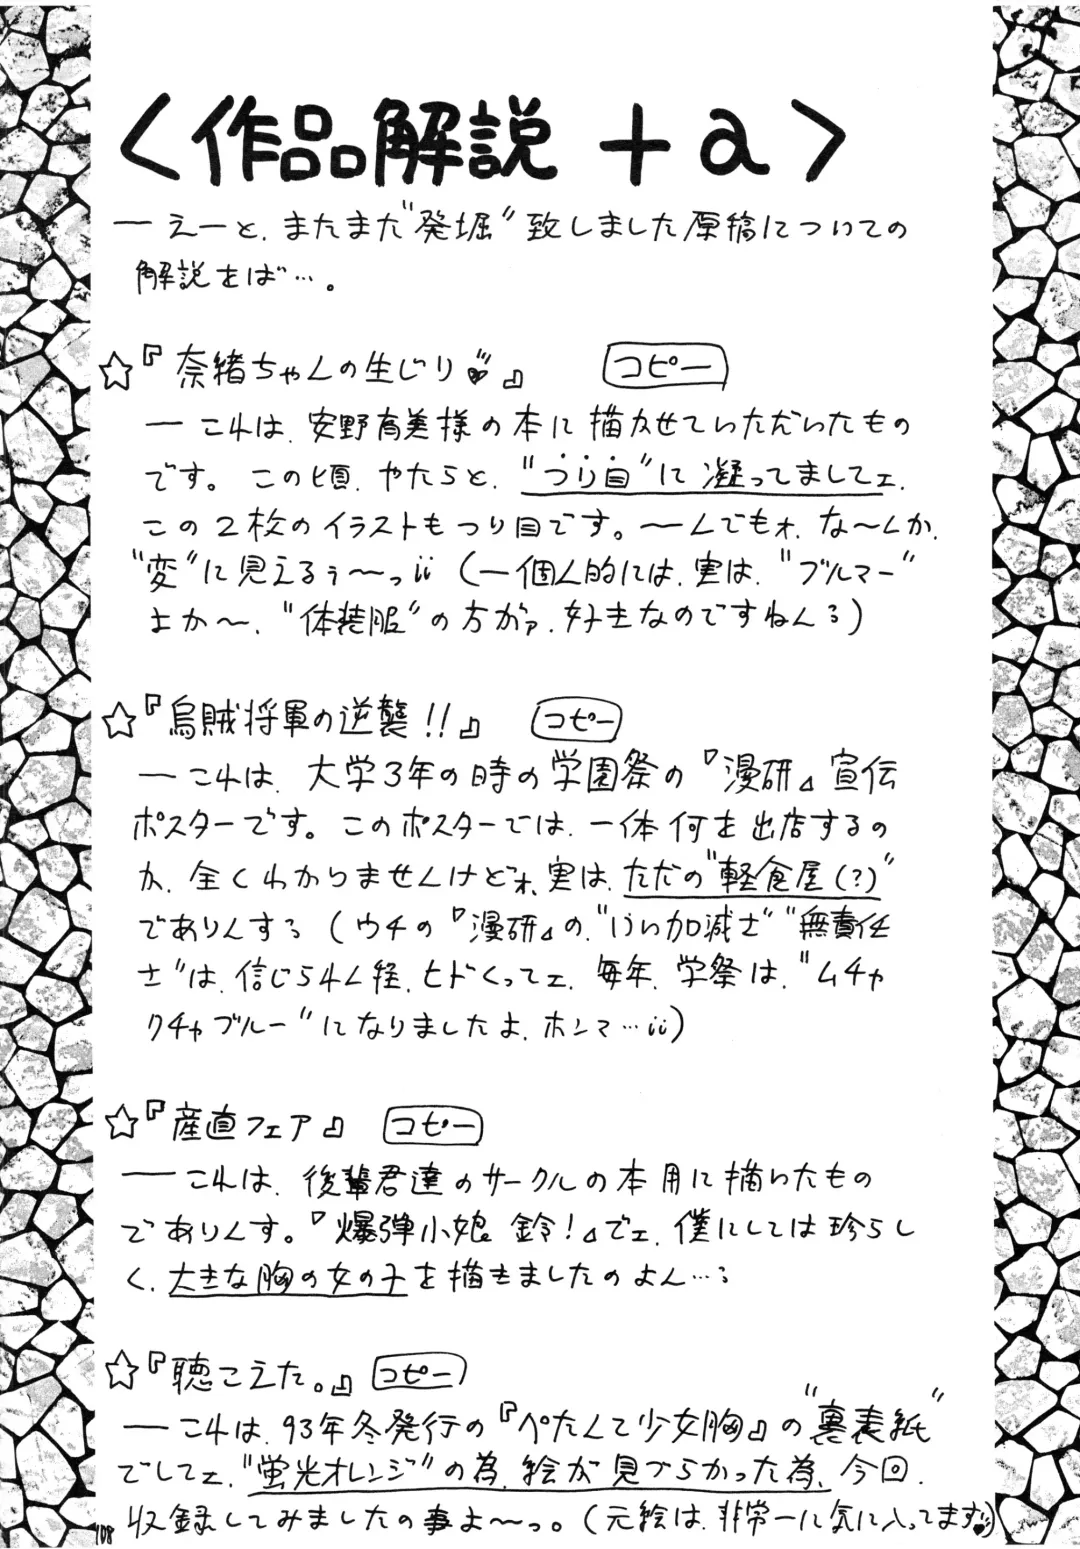 〈作品解説 +a〉
― えーと、またまだ"発堀"致しました原稿についての
解説をば…。
☆『奈緒ちゃんの生じり♥』 コピー
― これは、安野育美様の本に描かせていただいたもの
です。この頃、やたらと、"つり目"に凝ってましてェ、
この2枚のイラストもつり目です。〜んでもォ、な〜んか、
"変"に見えるぅ〜っii(一個人的には、実は、"ブルマー"
よか〜、"体装服"の方がァ、好きなのですねんる)
☆『烏賊将軍の逆襲!!』 コピー
― これは、大学3年の時の学園祭の『漫研』宣伝
ポスターです。このポスターでは、一体何を出店するの
か、全くわかりませんけどォ、実は、ただの"軽食屋(?)"
でありんする(ウチの『漫研』の、"いい加減さ""無責任
さ"は、信じられん程、ヒドくってェ、毎年、学祭は、"ムチャ
クチャブルー"になりましたよ、ホンマ…ii)
☆『産直フェア』 コピー
― これは、後輩君達のサークルの本用に描いたもの
でありんす。『爆弾小娘 鈴!』でェ、僕にしては珍らし
く、大きな胸の女の子を描きましたのよん…る
☆『聴こえた。』 コピー
― これは、93年冬発行の『ぺたんて少女胸』の"裏表紙"
でしてェ、"蛍光オレンジ"の為、絵が見づらかった為、今回、
収録してみましたの事よ〜っ。(元絵は、非常ーに気に入ってます♥)
108